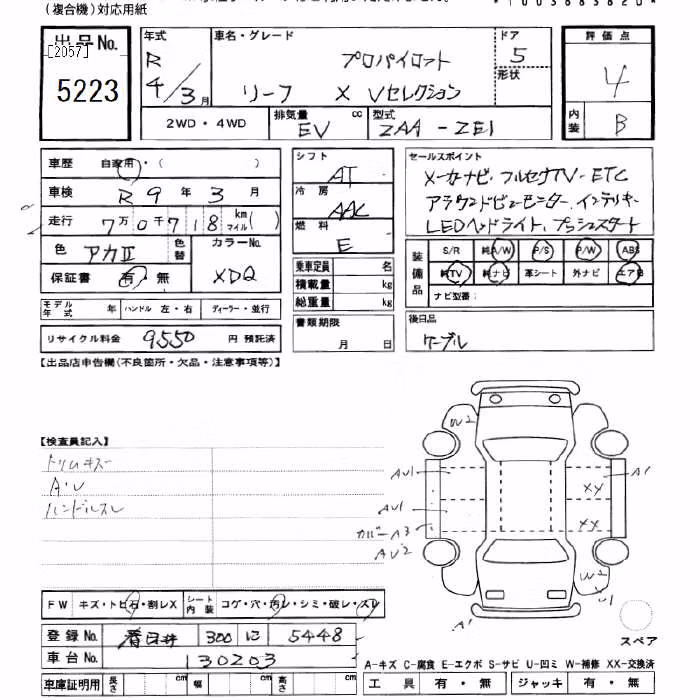 (複合機)対応用紙
出品No.
[2057]
5223
年式
R
4/3月
車名・グレード
プロパイロット
リーフ X Vセレクション
ドア
5
形状
評価点
4
内装
B
2WD・4WD
排気量 cc
EV
型式
ZAA-ZE1
車歴 自家用・( )
車検 R 9年 3月
走行 7万0千718 km マイル( )
色 アカⅡ
色替
カラーNo.
XDQ
保証書 有・無
モデル年式 年 ハンドル 左・右 ディーラー・並行
リサイクル料金 9550 円 預託済
シフト
AT
冷房
AAC
燃料
E
乗車定員 名
積載量 kg
総重量 kg
書類期限
月 日
セールスポイント
メーカーナビ・フルセグTV・ETC
アラウンドビューモニター、インテリキー
LEDヘッドライト、プッシュスタート
装備品
S/R 純A/W P/S P/W ABS
純TV 純ナビ 革シート 外ナビ エアB
ナビ型番:
後日品
ケーブル
【出品店申告欄(不良箇所・欠品・注意事項等)】
【検査員記入】
トリムキズ
A・U
ハンドルスレ
W2
AU1
A1
AU1
XY
カバーA3
XX
AU2
W2
A1
スペア
FW キズ・トビ石・割レX シート内装 コゲ・穴・汚レ・シミ・破レ・スレ
登録No. 春日井 300 に 5448
車台No. 130203
車庫証明用 長さ cm 幅 cm 高さ cm
A-キズ C-腐食 E-エクボ S-サビ U-凹ミ W-補修 XX-交換済
工具 有・無 ジャッキ 有・無